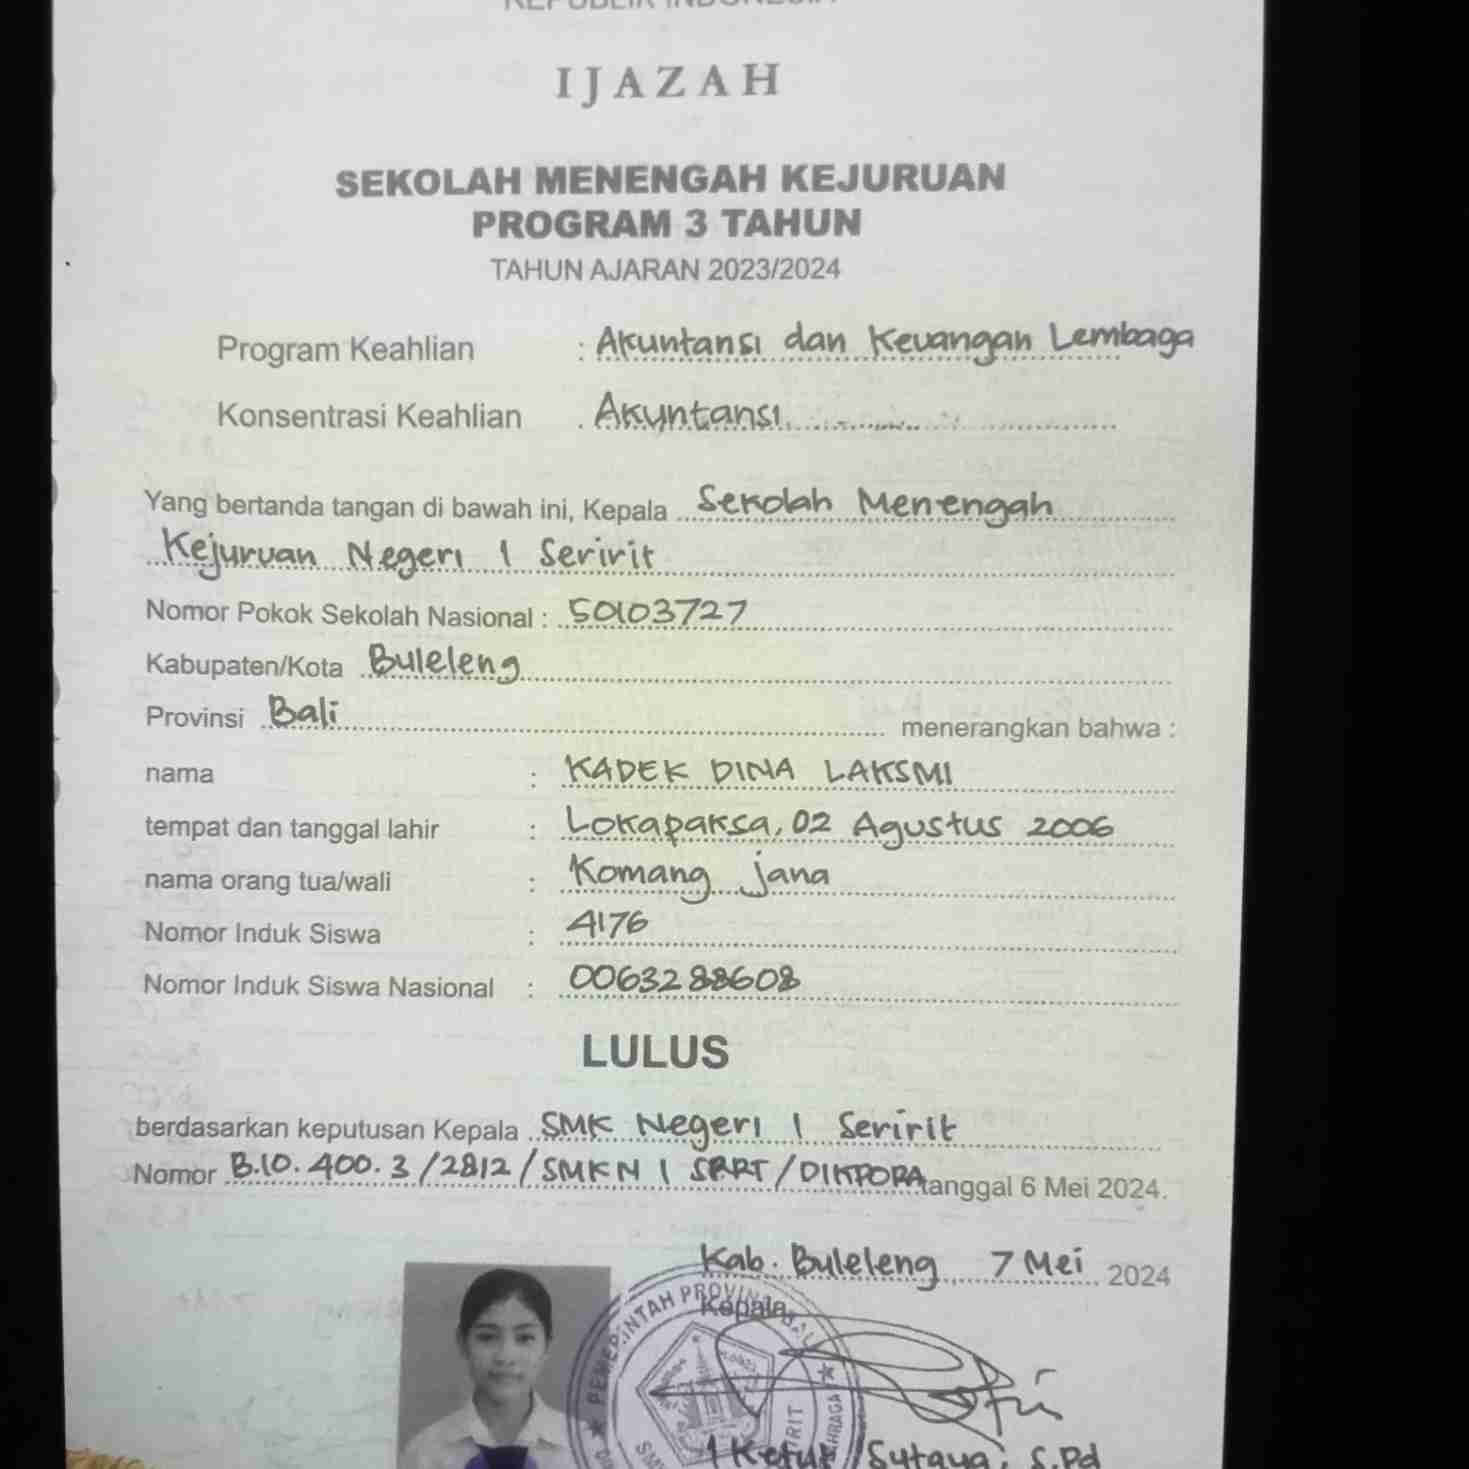 REPUBLIK INDONESIA
IJAZAH
SEKOLAH MENENGAH KEJURUAN
PROGRAM 3 TAHUN
TAHUN AJARAN 2023/2024
Program Keahlian : Akuntansi dan Keuangan Lembaga
Konsentrasi Keahlian : Akuntansi
Yang bertanda tangan di bawah ini, Kepala Sekolah Menengah
Kejuruan Negeri 1 Seririt
Nomor Pokok Sekolah Nasional : 50103727
Kabupaten/Kota Buleleng
Provinsi Bali menerangkan bahwa :
nama : KADEK DINA LAKSMI
tempat dan tanggal lahir : Lokapaksa, 02 Agustus 2006
nama orang tua/wali : Komang jana
Nomor Induk Siswa : 4176
Nomor Induk Siswa Nasional : 0063288608
LULUS
berdasarkan keputusan Kepala SMK Negeri 1 Seririt
Nomor B.10.400.3/2812/SMKN 1 SRRT/DIKPORA tanggal 6 Mei 2024.
Kab. Buleleng, 7 Mei 2024
Kepala,
PEMERINTAH PROVINSI BALI
I Ketut Sutaya, S.Pd